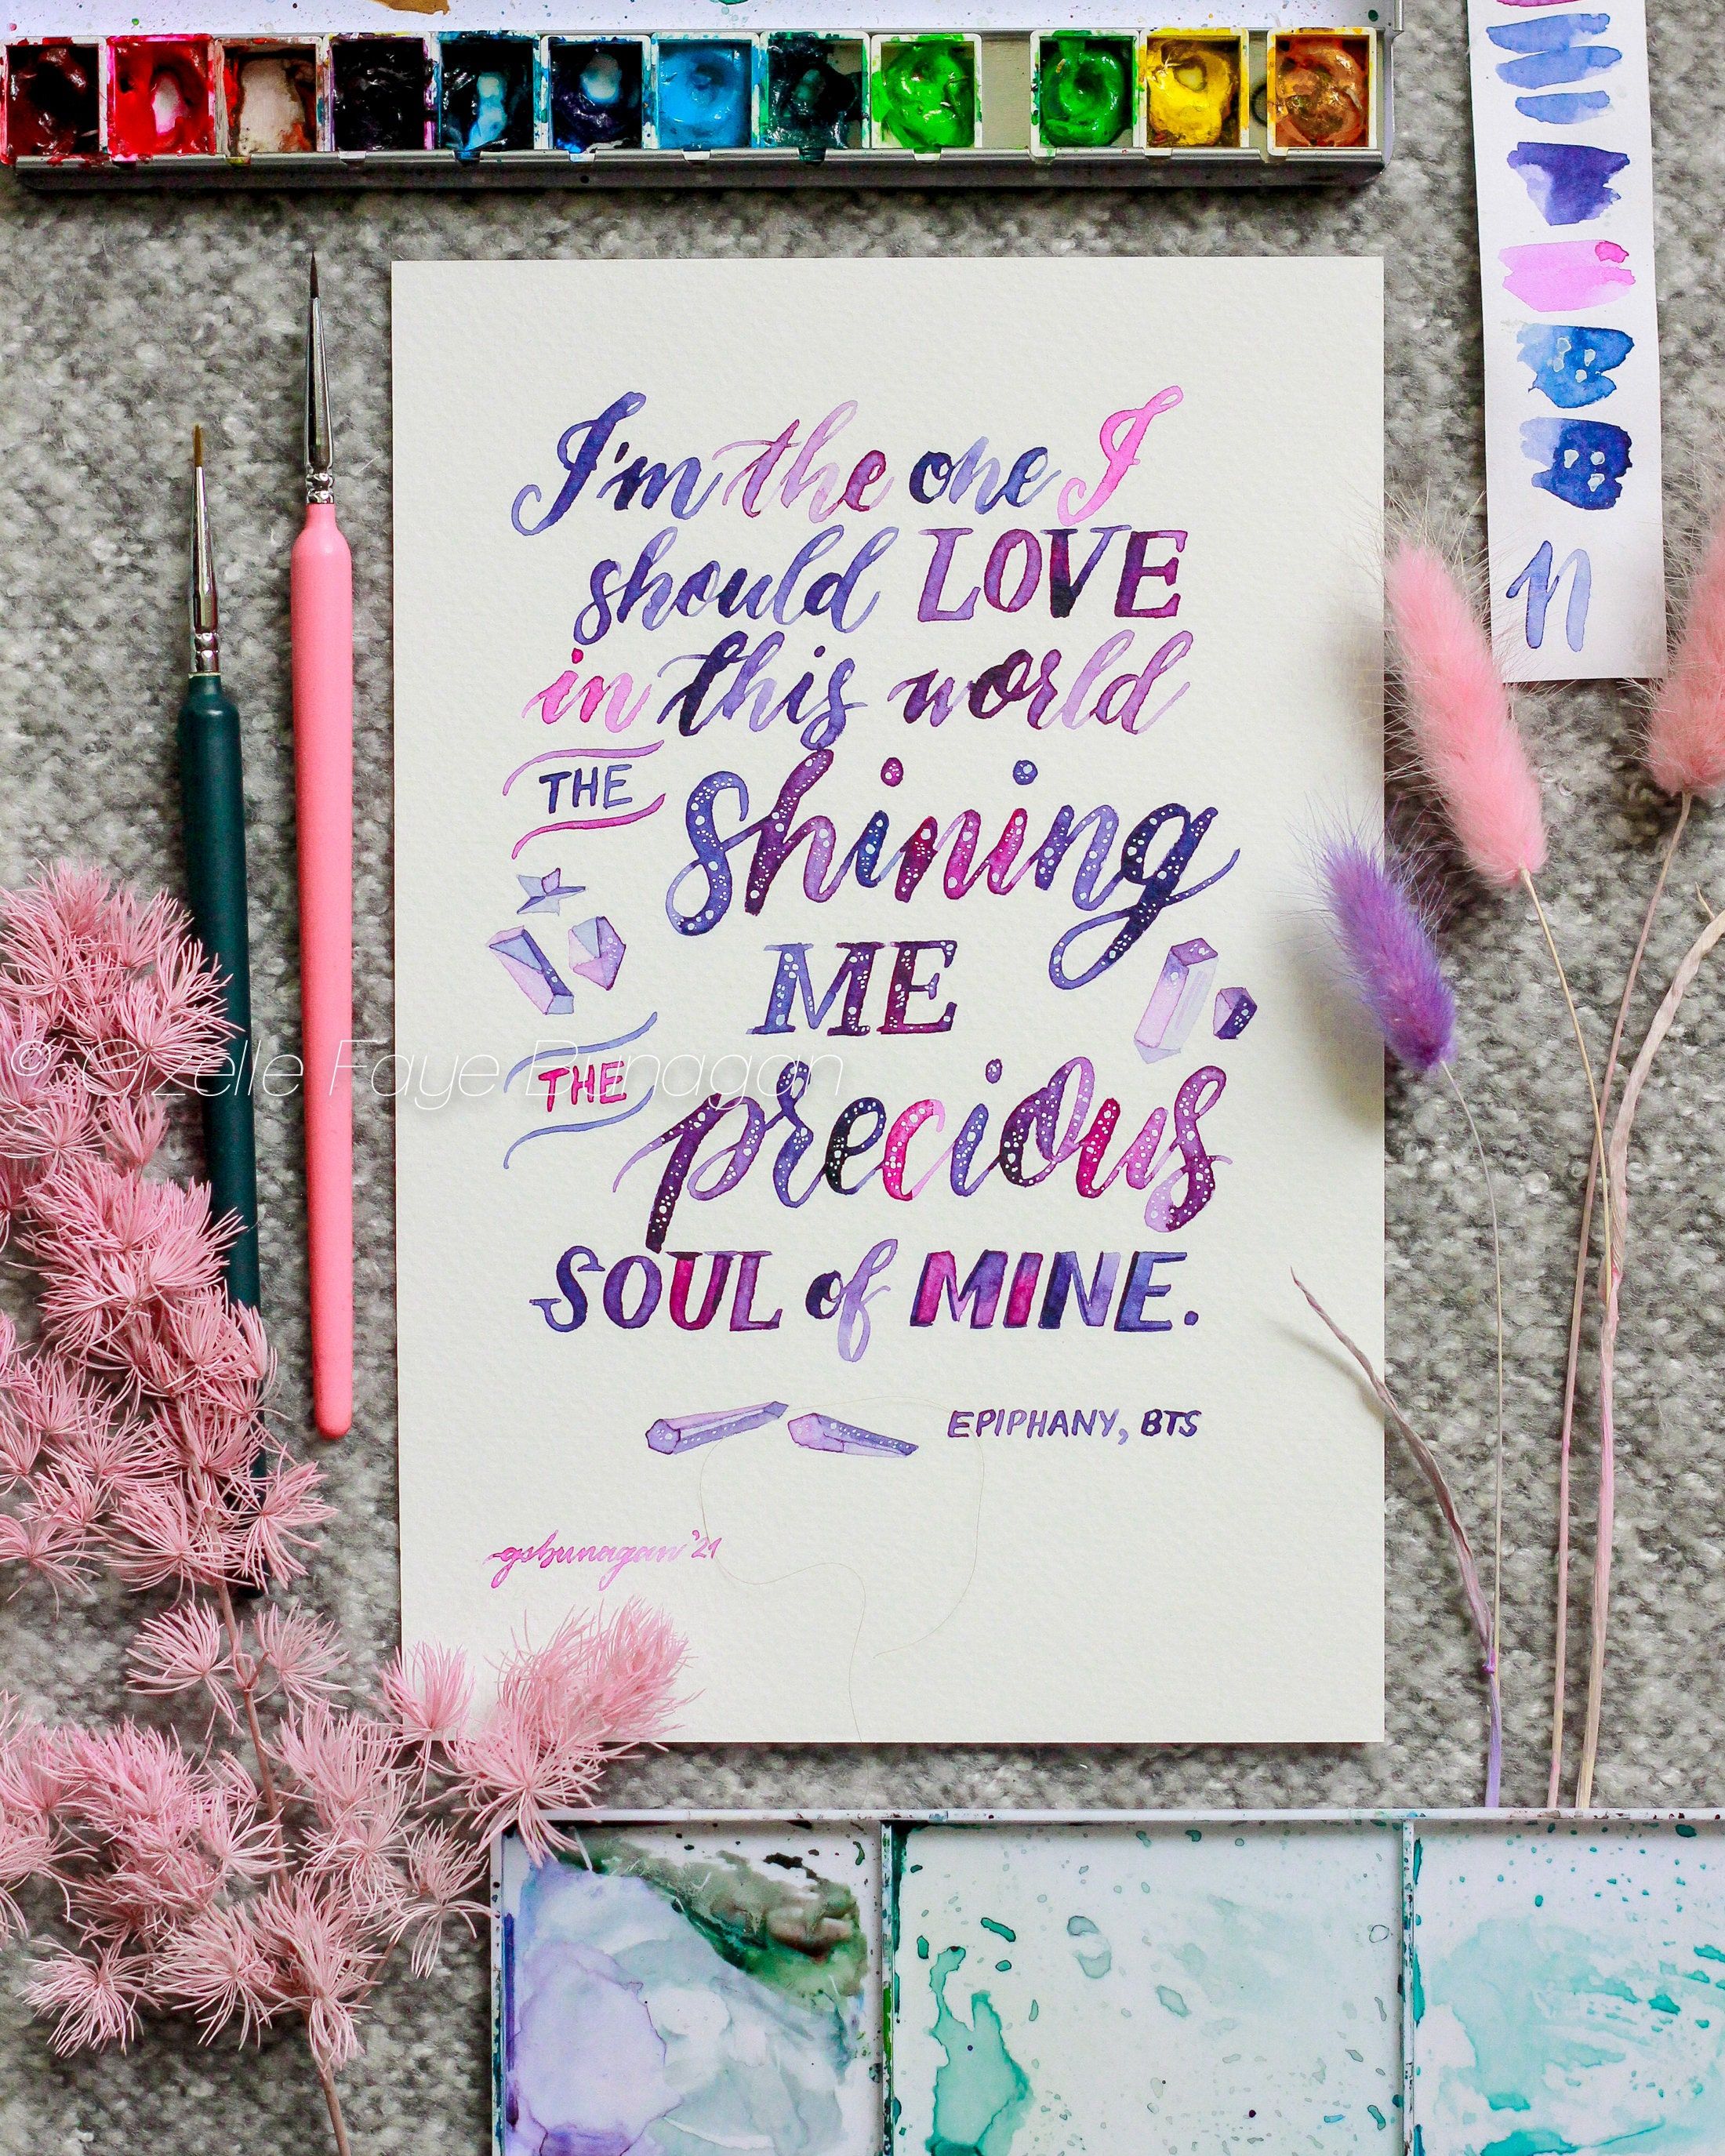 I'm the one I
should LOVE
in this world
THE shining
ME
© Gizelle Faye Bunagan
THE precious
SOUL of MINE.
EPIPHANY, BTS
gsbunagan '21
n